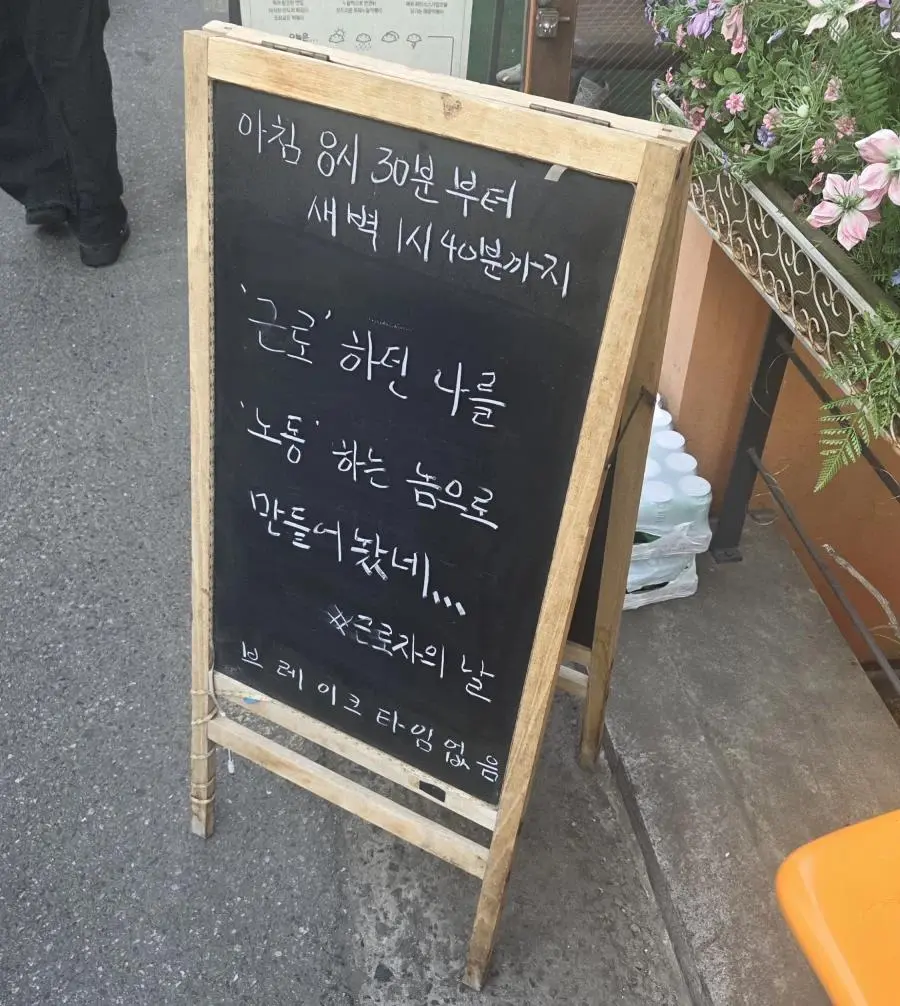 아침 8시 30분 부터
새벽 1시 40분까지
'근로' 하던 나를
'노동' 하는 놈으로
만들어놨네...
※근로자의 날
브레이크타임없음